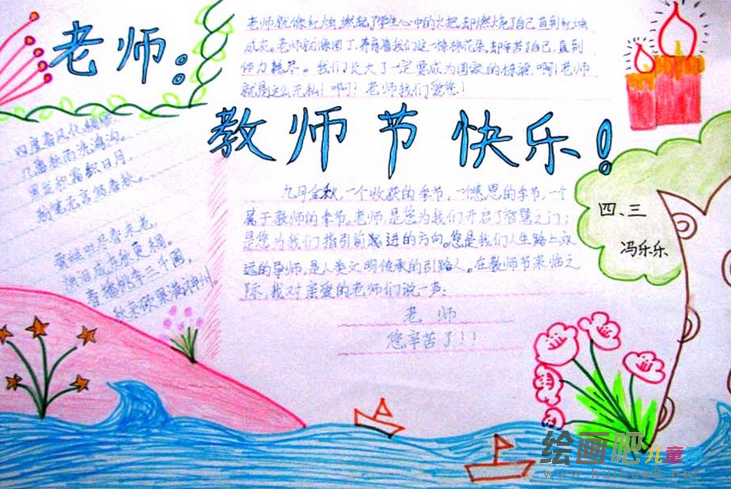 老师：
老师就像红烛，燃起了学生心中的火把，却燃烧了自己直到红烛
成灰。老师就像园丁，养育着我们这一棵棵花朵，却辛苦了自己，直到
精力耗尽。我们长大了一定要成为国家的栋梁。啊！老师
就是这么无私！啊！老师我们爱您！
教师节快乐！
四度春风化绸缪，
几番秋雨洗鸿沟。
黑发积霜织日月，
粉笔无言写春秋。
蚕丝吐尽春未老，
烛泪成灰秋更稠。
春播桃李三千圃，
秋来硕果满神州。
九月金秋，一个收获的季节，一个感恩的季节，一个
属于教师的季节。老师，是您为我们开启了智慧之门；
是您为我们指引前进的方向。您是我们人生路上永
远的导师，是人类文明传承的引路人。在教师节来临之
际，我对亲爱的老师们说一声：
老师
您辛苦了！！
四、三
冯乐乐
绘画吧儿童